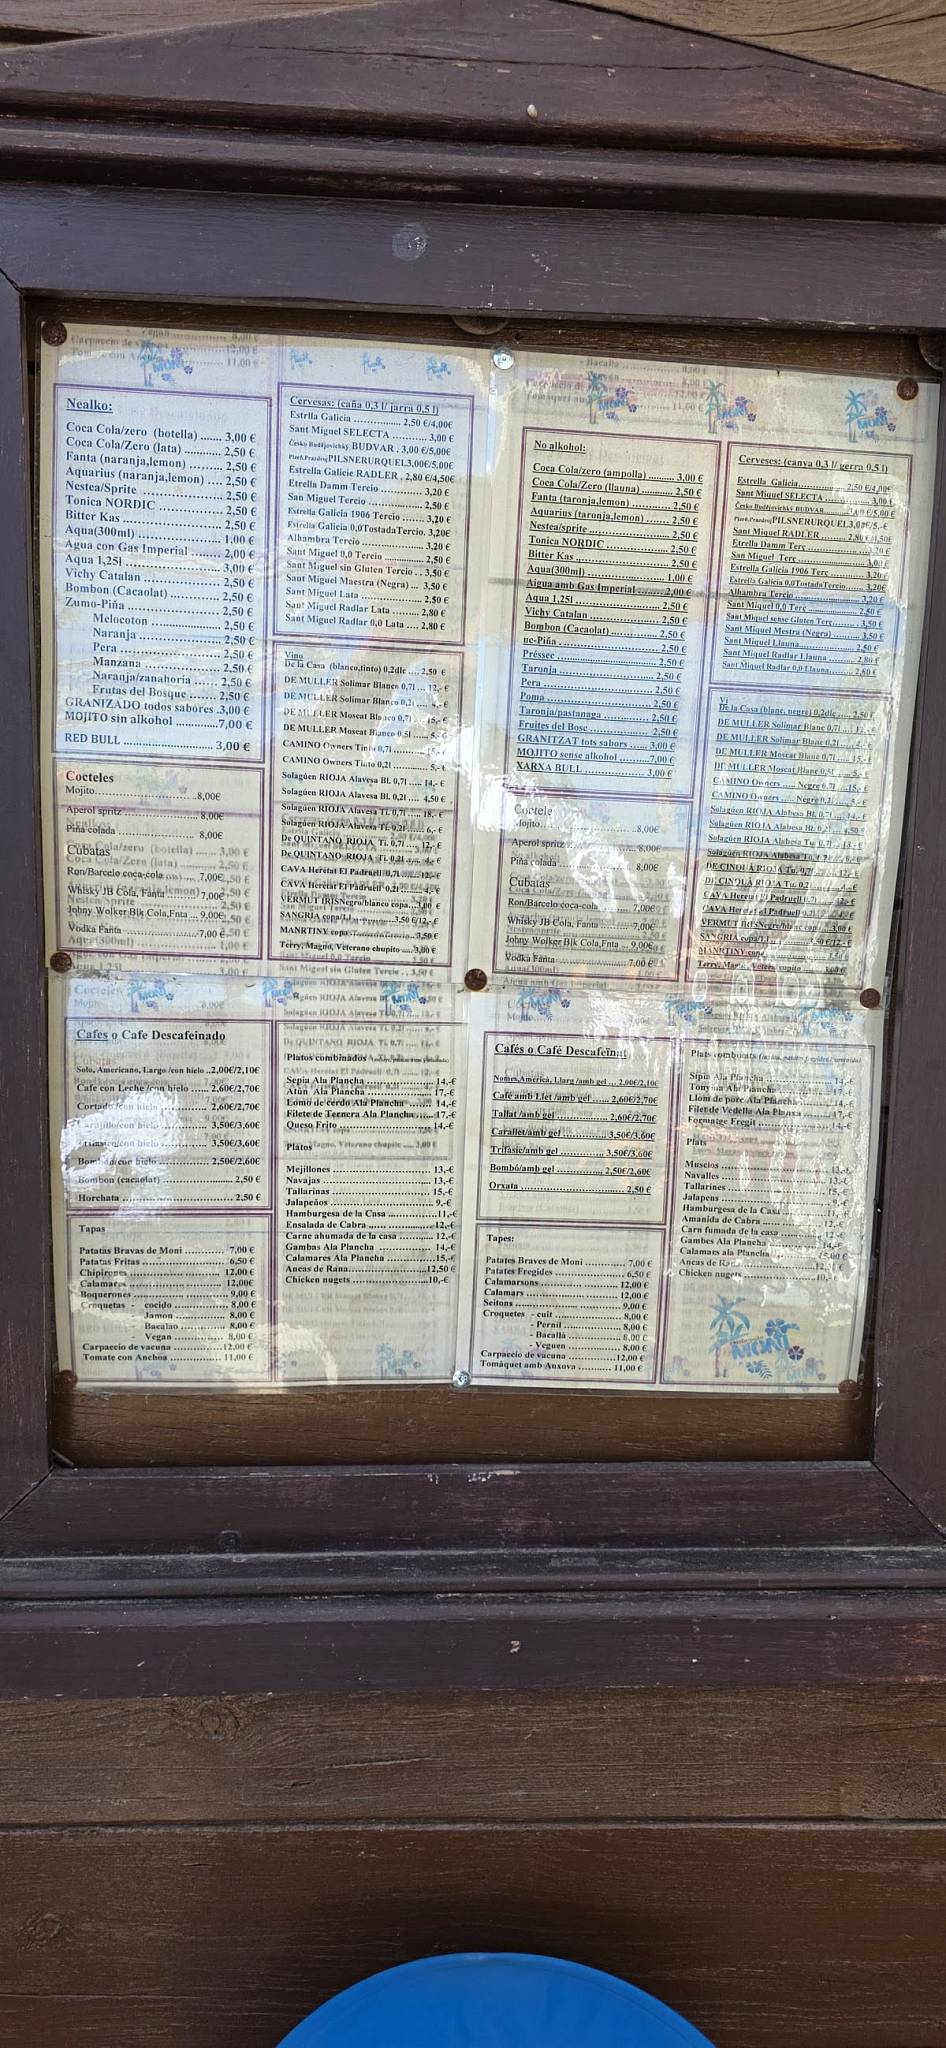 MONI
Nealko:
Coca Cola/zero (botella) ...... 3,00 €
Coca Cola/Zero (lata) ........... 2,50 €
Fanta (naranja,lemon) .......... 2,50 €
Aquarius (naranja,lemon) .... 2,50 €
Nestea/Sprite ...................... 2,50 €
Tonica NORDIC ................. 2,50 €
Bitter Kas ........................... 2,50 €
Aqua(300ml) ....................... 1,00 €
Agua con Gas Imperial ........ 2,00 €
Aqua 1,25l ........................... 3,00 €
Vichy Catalan ..................... 2,50 €
Bombon (Cacaolat) .............. 2,50 €
Zumo-Piña .......................... 2,50 €
Melocoton ...................... 2,50 €
Naranja .......................... 2,50 €
Pera ............................... 2,50 €
Manzana ........................ 2,50 €
Naranja/zanahoria ......... 2,50 €
Frutas del Bosque ........... 2,50 €
GRANIZADO todos sabores .3,00 €
MOJITO sin alkohol ............7,00 €
RED BULL ......................... 3,00 €
Cocteles
Mojito..............................8,00€
Aperol spritz .....................8,00€
Piña colada .......................8,00€
Cubatas
Ron/Barcelo coca-cola ........ 7,00€
Whisky JB Cola, Fanta ........7,00€
Johny Wolker Blk Cola,Fnta ... 9,00€
Vodka Fanta .......................7,00 €
Cervesas: (caña 0,3 l/ jarra 0,5 l)
Estrlla Galicia ................... 2,50 €/4,00€
Sant Miguel SELECTA ........... 3,00 €
Česko Budějovický BUDVAR . 3,00 €/5,00€
Plzeň.Prazdroj PILSNERURQUEL3,00€/5,00€
Estrella Galicie RADLER . 2,80 €/4,50€
Etrella Damm Tercio ............ 3,20 €
San Miguel Tercio ................ 2,50 €
Estrella Galicia 1906 Tercio ....... 3,20 €
Estrella Galicia 0,0TostadaTercio. 3,20€
Alhambra Tercio .................. 3,20 €
Sant Miguel 0,0 Tercio ............ 2,50 €
Sant Miguel sin Gluten Tercio . . 3,50 €
Sant Miguel Maestra (Negra) ... 3,50 €
Sant Miguel Lata .................. 2,50 €
Sant Miguel Radlar Lata ......... 2,80 €
Sant Miguel Radlar 0,0 Lata .... 2,80 €
Vino
De la Casa (blanco,tinto) 0,2dlc ..... 2,50 €
DE MULLER Solimar Blanco 0,7l ... 12,- €
DE MULLER Solimar Blanco 0,2l
DE MULLER Moscat Blanco 0,7l
DE MULLER Moscat Blanco 0.5l ..... 5,- €
CAMINO Owners Tinto 0,7l
CAMINO Owners Tinto 0,2l .......... 5,- €
Solagüen RIOJA Alavesa Bl. 0,7l .... 14,- €
Solagüen RIOJA Alavesa Bl. 0,2l .... 4,50 €
Solagüen RIOJA Alavesa Ti. 0,7l .... 18,- €
Solagüen RIOJA Alavesa Ti. 0,2l ..... 6,- €
De QUINTANO RIOJA Ti. 0,7l ...... 12,- €
De QUINTANO RIOJA Ti. 0,2l ..... 4,- €
CAVA Heretat El Padruell 0,7l ......12,- €
CAVA Heretat El Padruell 0,2l ...... 4,- €
VERMUT IRISNegro/blanco copa....3,00 €
SANGRIA copa/1.l .............3,50 €/12,- €
MANRTINY copa ................3,50 €
Terry, Magno, Veterano chupito ...3,00 €
No alkohol:
Coca Cola/zero (ampolla) .......... 3,00 €
Coca Cola/Zero (llauna) ............ 2,50 €
Fanta (taronja,lemon) .............. 2,50 €
Aquarius (taronja,lemon) ......... 2,50 €
Nestea/sprite .......................... 2,50 €
Tonica NORDIC ...................... 2,50 €
Bitter Kas ............................... 2,50 €
Aqua(300ml) ........................... 1,00 €
Aigua amb Gas Imperial ........... 2,00 €
Aqua 1,25l
Vichy Catalan ......................... 2,50 €
Bombon (Cacaolat).................. 2,50 €
uc-Piña ................................. 2,50 €
Préssec .................................. 2,50 €
Taronja .................................. 2,50 €
Pera ....................................... 2,50 €
Poma ..................................... 2,50 €
Taronja/pastanaga .................. 2,50 €
Fruites del Bosc ...................... 2,50 €
GRANITZAT tots sabors ......... 3,00 €
MOJITO sense alkohol ............7,00 €
XARXA BULL ........................ 3,00 €
Cocteles
Mojito..............................8,00€
Aperol spritz .....................8,00€
Piña colada .......................8,00€
Cubatas
Ron/Barcelo coca-cola ........ 7,00€
Whisky JB Cola, Fanta ........7,00€
Johny Wolker Blk Cola,Fnta ... 9,00€
Vodka Fanta .......................7,00 €
Cerveses: (canya 0,3 l/ gerra 0,5 l)
Estrella Galicia ................. 2,50 €/4,00€
Sant Miquel SELECTA ........... 3,00 €
Česko Budějovický BUDVAR .. 3,00 €/5,00 €
Plzeň.Prazdroj PILSNERURQUEL3,00€/5,-€
Sant Miquel RADLER ........ 2,80 €/4,50€
Etrella Damm Terç ................ 3,20 €
San Miguel Terç .................... 3,00€
Estrella Galicia 1906 Terç ........ 3,20€
Estrella Galicia 0,0TostadaTercio.. 3,20€
Alhambra Tercio ................... 3,20 €
Sant Miquel 0,0 Terç .............. 2,50 €
Sant Miquel sense Gluten Terç..... 3,50 €
Sant Miquel Mestra (Negra) ...... 3,50 €
Sant Miquel Llauna ................ 2,50 €
Sant Miquel Radlar Llauna ....... 2,80 €
Sant Miquel Radlar 0,0 Llauna... 2,80 €
Vi
De la Casa (blanc, negre) 0,2dlc ..... 2,50 €
DE MULLER Solimar Blanc 0,7l
DE MULLER Solimar Blanc 0,2l
DE MULLER Moscat Blanc 0,7l
DE MULLER Moscat Blanc 0,5l
CAMINO Owners ..... Negre 0,7l ...15,- €
CAMINO Owners ..... Negre 0,2l ... 5,- €
Solagüen RIOJA Alabesa Bl. 0,7l .. 14,- €
Solagüen RIOJA Alabesa Bl. 0,2l .. 4,50 €
Solagüen RIOJA Alabesa Tu. 0,7l
Solagüen RIOJA Alabesa Tu.
DE CINQUÀ RIOJA Tu. 0,7l
DE CINQUÀ RIOJA Tu. 0,2
CAVA Heretat El Padruell 0,7l
CAVA Heretat El Padruell 0,2l
VERMUT IRISNegre/blanc copa ... 3,00 €
SANGRIA copa/1.l .......... 3,50 €/12,- €
MANRTINY copa
Terry, Magno, Veterano chupito .... 3,00 €
Cafes o Cafe Descafeinado
Solo, Americano, Largo /con hielo ..2,00€/2,10€
Cafe con Leche /con hielo ...... 2,60€/2,70€
Cortado/con hielo ............... 2,60€/2,70€
Carajillo/con hielo .............. 3,50€/3,60€
Trifasico/con hielo .............. 3,50€/3,60€
Bombón/con hielo ............... 2,50€/2,60€
Bombon (cacaolat) ........................ 2,50 €
Horchata .................................... 2,50 €
Tapas
Patatas Bravas de Moni ............ 7,00 €
Patatas Fritas ........................ 6,50 €
Chipirones ............................12,00 €
Calamares ............................ 12,00€
Boquerones .......................... 9,00 €
Croquetas - cocido ................ 8,00 €
- Jamon ................. 8,00 €
- Bacalao ............... 8,00 €
- Vegan ................. 8,00 €
Carpaccio de vacuna ...............12,00 €
Tomate con Anchoa ............... 11,00 €
Platos combinados
Sepia Ala Plancha ....................... 14,-€
Atún Ala Plancha ........................ 17,-€
Lomo de cerdo Ala Plancha ........... 14,-€
Filete de Ternera Ala Plancha........17,-€
Queso Frito ............................... 14,-€
Platos
Mejillones ................................. 13,-€
Navajas .................................... 13,-€
Tallarinas ................................. 15,-€
Jalapeños .................................. 9,-€
Hamburgesa de la Casa ...............11,-€
Ensalada de Cabra ..................... 12,-€
Carne ahumada de la casa ........... 12,-€
Gambas Ala Plancha .................. 14,-€
Calamares Ala Plancha ............... 15,-€
Ancas de Rana........................12,50 €
Chicken nuggets .......................10,-€
Cafés o Café Descafeïnat
Només,Amèrica, Llarg /amb gel ... 2,00€/2,10€
Café amb Llet /amb gel ....... 2,60€/2,70€
Tallat/amb gel .................. 2,60€/2,70€
Carallet/amb gel ................ 3,50€/3,60€
Trifàsic/amb gel ................ 3,50€/3,60€
Bombó/amb gel ................. 2,50€/2,60€
Orxata .............................. 2,50 €
Tapes:
Patates Braves de Moni ............ 7,00 €
Patates Fregides ..................... 6,50 €
Calamarsons .........................12,00 €
Calamars ..............................12,00 €
Seitons ................................. 9,00 €
Croquetes - cuit ..................... 8,00 €
- Pernil ................... 8,00 €
- Bacallà .................. 8,00 €
- Veguen .................. 8,00 €
Carpaccio de vacuna ...............12,00 €
Tomàquet amb Anxova ........... 11,00 €
Plats combinats
Sípia Ala Plancha ....................... 14,-€
Tonyina Ala Plancha ................... 17,-€
Llom de porc Ala Plancha ............ 14,-€
Filet de Vedella Ala Plansa .......... 17,-€
Formatge Fregit ......................... 14,-€
Plats
Musclos ................................... 13,-€
Navalles .................................. 13,-€
Tallarines ................................ 15,-€
Jalapens
Hamburgesa de la Casa .............. 11,-€
Amanida de Cabra ..................... 12,-€
Carn fumada de la casa ............... 12,-€
Gambes Ala Plancha .................. 14,-€
Calamars ala Plancha
Ancas de Rana........................12,50 €
Chicken nuggets .......................10,-€
MONI